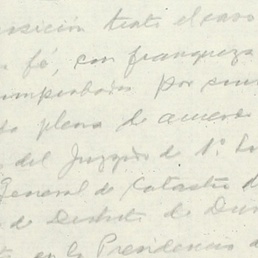 posición trate el caso
fé, con franqueza
comprobados por
plena de acuerdo
del Juzgado de 1ª
General de Catastro d
de Distrito de Du
en la Presidencia d